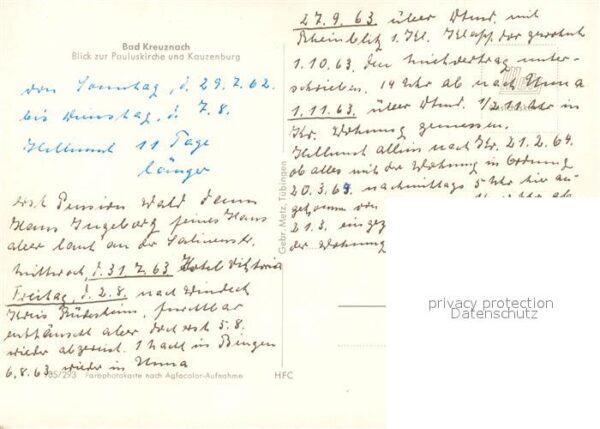 Bad Kreuznach
Blick zur Pauluskirche und Kauzenburg
von Sonntag, d. 29.7.62.
bis Dienstag, d. 7.8.
Hellmut 11 Tage
länger
erst Pension Wald dann
Haus Ingeborg feines Haus
aber laut an der Salinenstr.
Mittwoch, d. 31.7.63 Hotel Viktoria
Freitag, d. 2.8. nach Windesh
Kreis Rüdesheim, furchtbar
enttäuscht aber doch erst 5.8.
wieder abgereist. 1 Nacht in Bingen
6.8.63 wieder in Unna
105/293 Farbphotokarte nach Agfacolor-Aufnahme
HFC
Gebr. Metz, Tübingen
27.9.63 über Dtmd. mit
Rheinblitz 1. Kl. gewohnt
1.10.63 den Mietvertrag unter-
schrieben. 14 Uhr ab nach Unna
1.11.63 über Dtmd. 1/2 11 Uhr in
Kr. Wohnung gemessen.
Hellmut allein nach Kr. 21.2.64
ob alles mit der Wohnung in Ordnung
20.3.64 nachmittags 5 Uhr hier an-
gekommen von Uhr ab
21.3. eingez
der Wohnung
privacy protection
Datenschutz